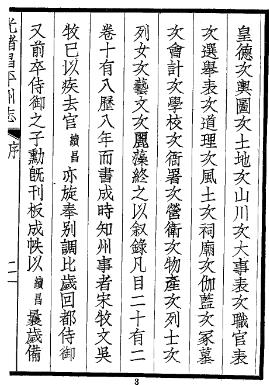 皇德次輿圖次土地次山川次大事表次職官表
次選舉表次道理次風土次祠廟次伽藍次冢墓
次會計次學校次衙署次營衛次物產次列士次
列女次藝文次麗藻終之以叙錄凡目二十有二
卷十有八歷八年而書成時知州事者宋牧文吴
牧巳以疾去官續昌亦旋奉别調比歲回都侍御
又前卒侍御之子勳旣刊板成帙以續昌曩歲備
光緒昌平州志
序
二
3